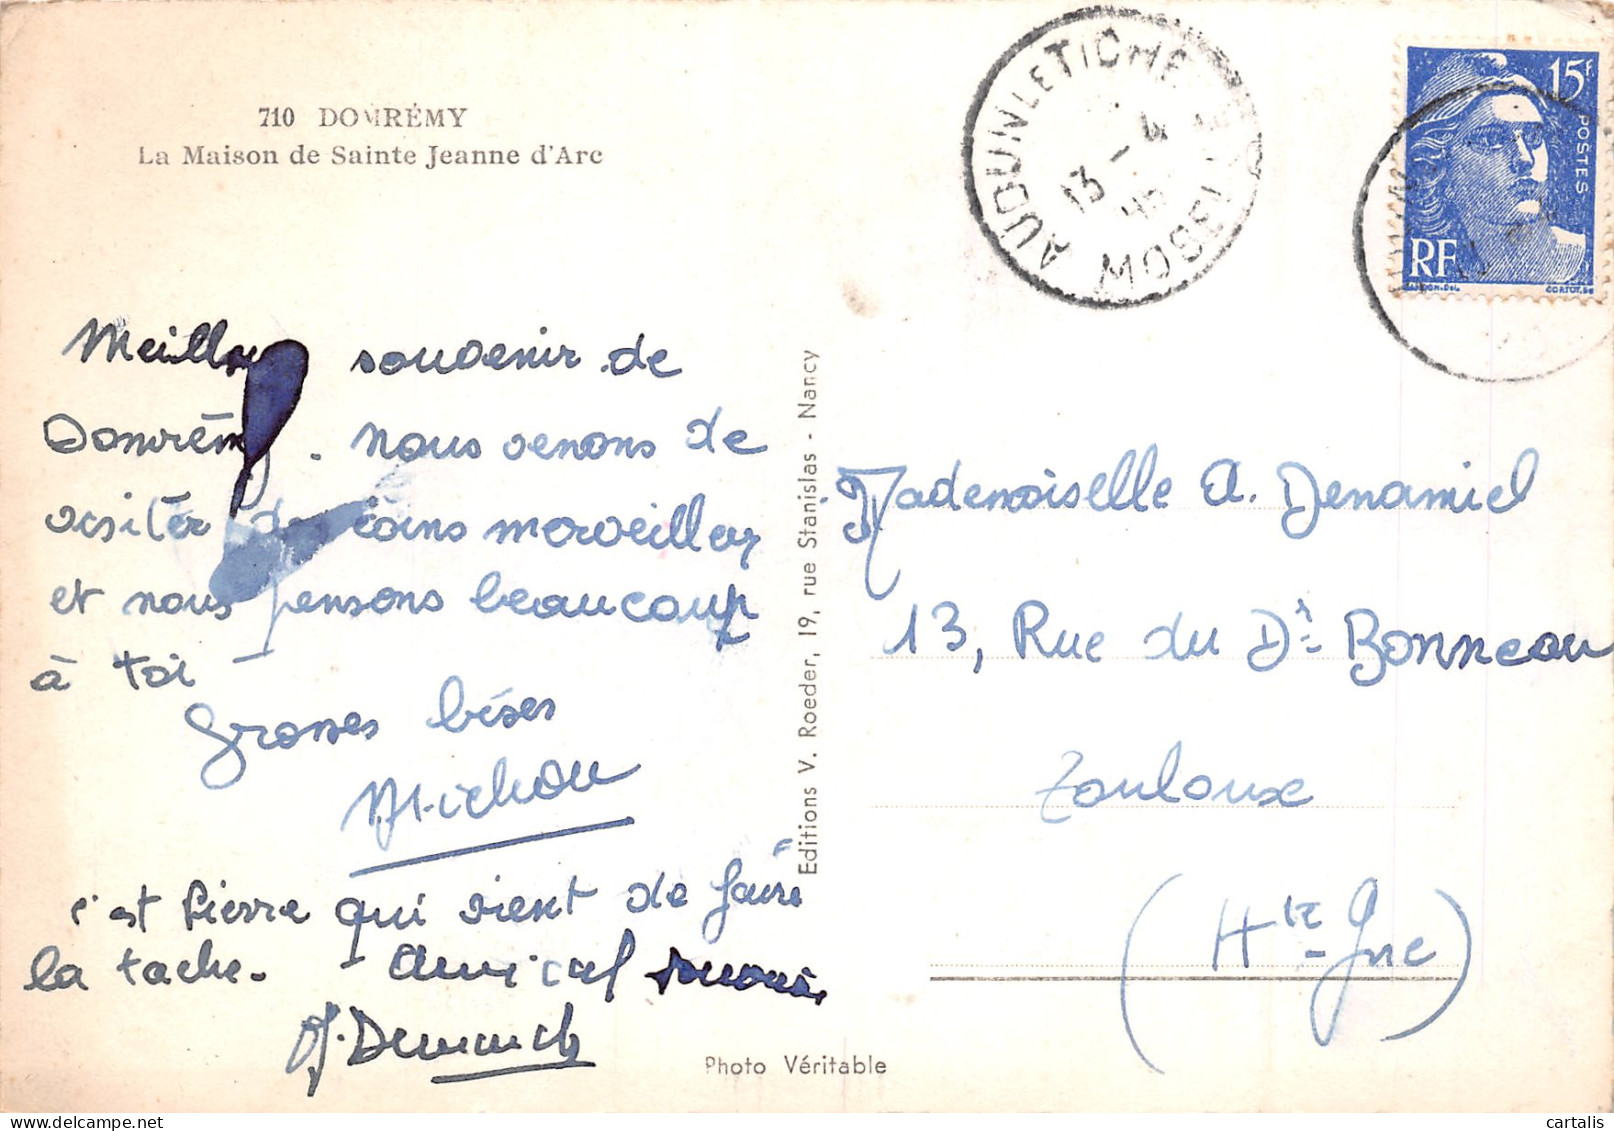 710 DOMRÉMY
La Maison de Sainte Jeanne d'Arc
AUDUN LE TICHE
13 - 4
MOSELLE
15F
POSTES
RF
Meilleur souvenir de
Domrémy. Nous venons de
visiter des coins merveilleux
et nous pensons beaucoup
à toi -
Grosses bises
Michou
c'est Pierre qui vient de faire
la tache. - Amical souvenir
Editions V. Roeder, 19, rue Stanislas - Nancy
Photo Véritable
Mademoiselle A. Denamiel
13, Rue du Dr Bonneau
Toulouse
(Hte Gne)
cartalis